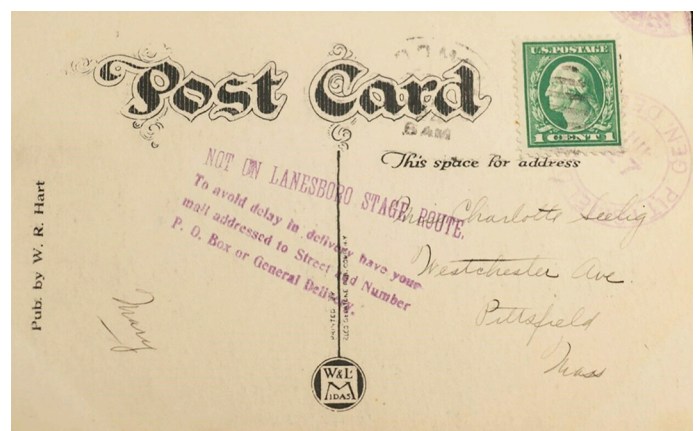 Post Card
8 AM
U.S. POSTAGE
1 CENT 1
This space for address
NOT ON LANESBORO STAGE ROUTE.
To avoid delay in delivery have your
mail addressed to Street and Number
P. O. Box or General Delivery.
Charlotte Seelig
Westchester Ave.
Pittsfield
Mass
Mary
Pub. by W. R. Hart
PRINTED
W&L
MIDAS
GEN DE